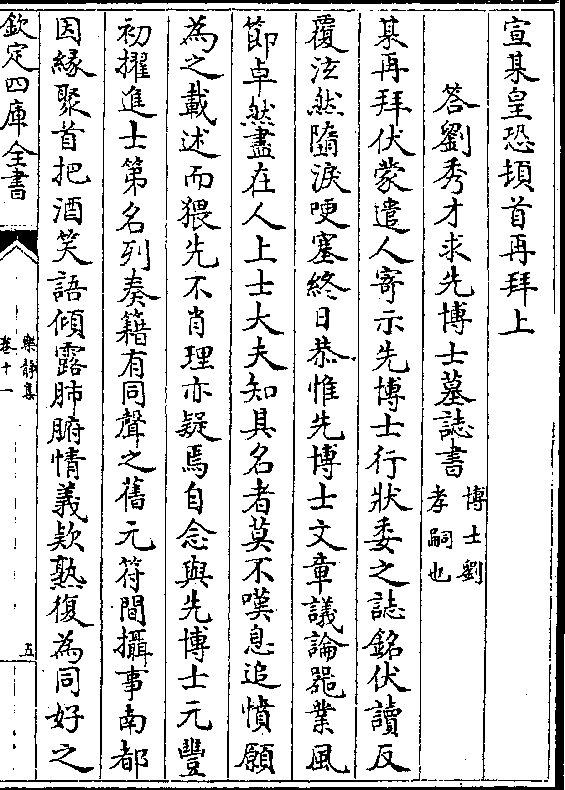 宣某皇恐頓首再拜上
答劉秀才求先博士墓誌書博士劉孝嗣也
某再拜伏蒙遣人寄示先博士行狀委之誌銘伏讀反
覆泫然隨淚哽塞終日恭惟先博士文章議論器業風
節卓然盡在人上士大夫知其名者莫不嘆息追憤願
為之載述而猥先不肖理亦疑焉自念與先博士元豐
初擢進士第名列奏籍有同聲之舊元符間攝事南都
因緣聚首把酒笑語傾露肺腑情義欵熟復為同好之
欽定四庫全書
樂静集
卷十一
五